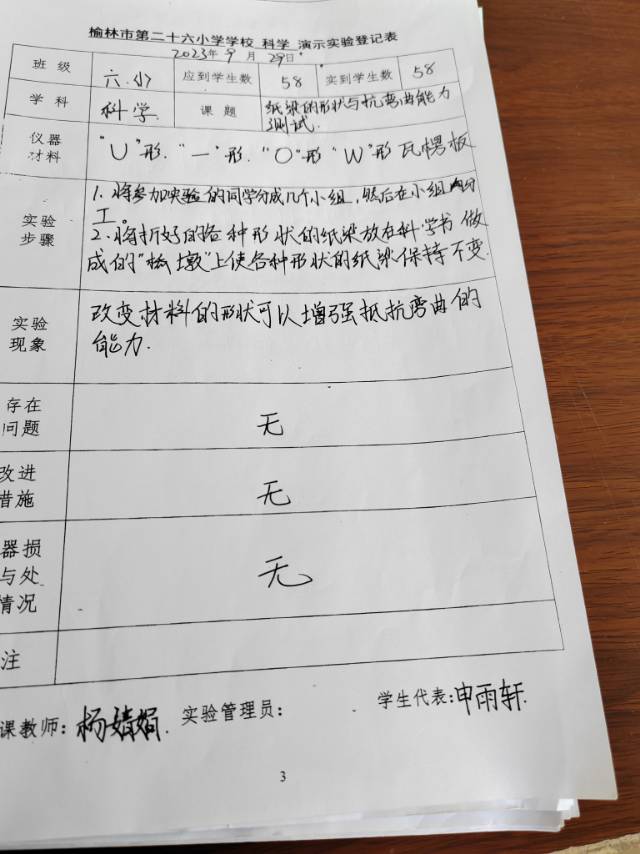 榆林市第二十六小学学校 科学 演示实验登记表
2023年9月29日
班级 六.小 应到学生数 58 实到学生数 58
学科 科学. 课题 纸梁的形状与抗弯曲能力
测试.
仪器
材料
"U"形. "一"形. "O"形 "W"形 瓦楞板
实验
步骤
1. 将参加实验的同学分成几个小组, 然后在小组内分
工。
2. 将折好的各种形状的纸梁放在科学书做
成的"桥墩"上使各种形状的纸梁保持不变
实验
现象
改变材料的形状可以增强抵抗弯曲的
能力.
存在
问题
无
改进
措施
无
器损
与处
情况
无
注
课教师: 杨婧娟. 实验管理员: 学生代表: 申雨轩.
3